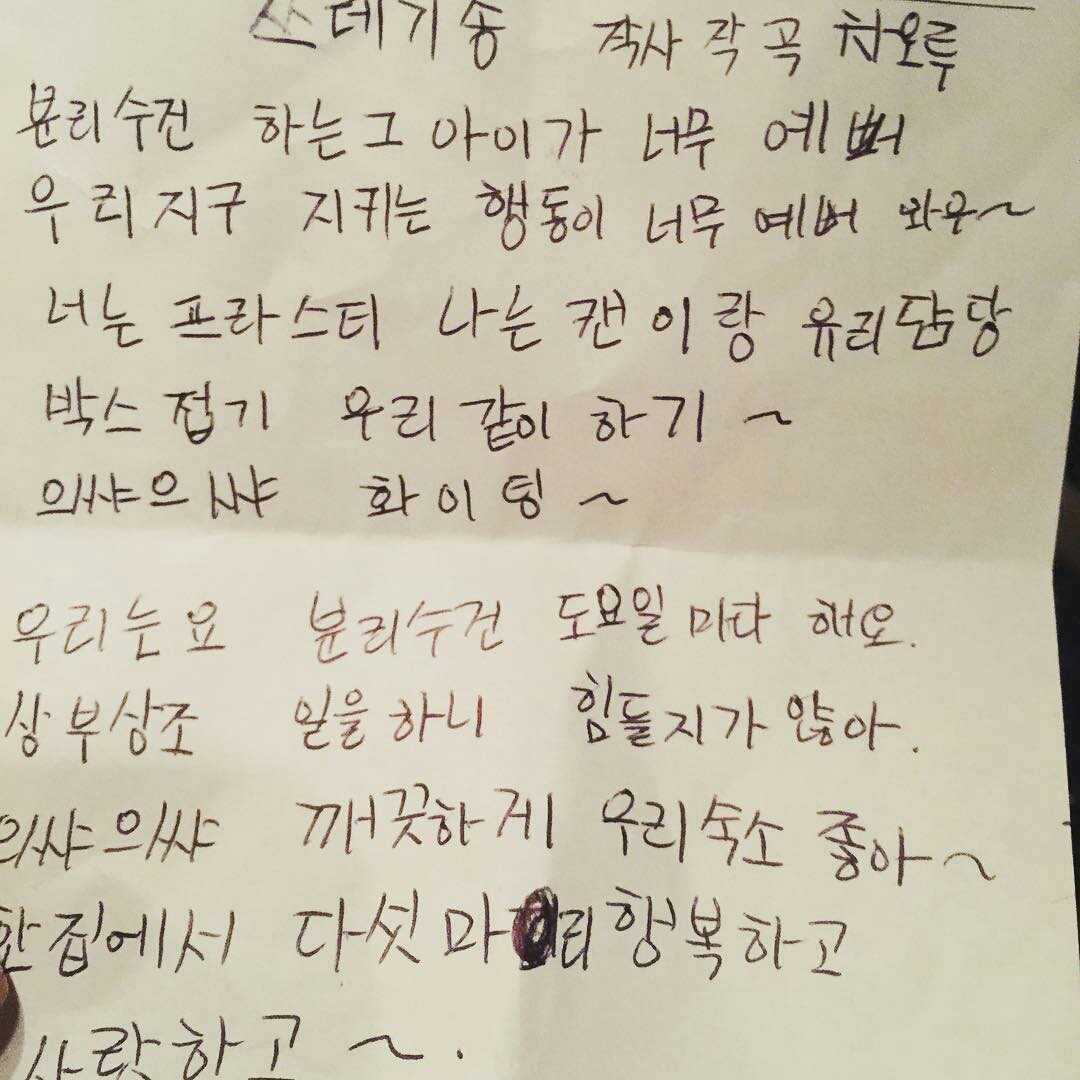 쓰데기송 작사 작곡 차오루
분리수건 하는 그 아이가 너무 예뻐
우리지구 지귀는 행동이 너무 예뻐 와우~
너는 프라스티 나는 캔이랑 유리담당
박스 접기 우리 같이 하기 ~
의쌰으쌰 화이팅 ~
우리는요 분리수건 도요일 마다 해요.
상부상조 일을 하니 힘들지가 않아.
의쌰의쌰 깨끗하게 우리숙소 좋아~
한집에서 다섯마리 행복하고
사랑하고 ~.